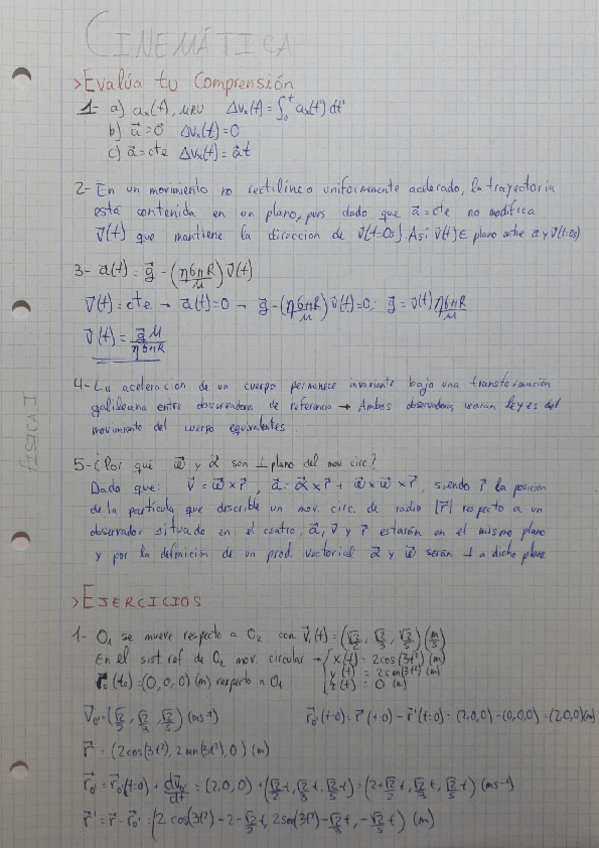 CINEMÁTICA
>Evalúa tu Comprensión
1- a) aₓ(t), MRU Δvₓ(t)=∫₀ᵗ aₓ(t')dt'
b) a⃗=0⃗ Δvₓ(t)=0
c) a⃗=cte Δvₓ(t)=a⃗t
2- En un movimiento no rectilíneo uniformemente acelerado, la trayectoria
está contenida en un plano, pues dado que a⃗=cte no modifica
v⃗(t) que mantiene la dirección de v⃗(t=0s). Así v⃗(t) ∈ plano entre a y v⃗(t=0s)
3- a⃗(t)= g⃗ - (η6πR/μ) v⃗(t)
v⃗(t)=cte → a⃗(t)=0 → g⃗-(η6πR/μ)v⃗(t)=0; g⃗= v⃗(t) η6πR/μ
v⃗(t)= g⃗μ/η6πR
4- La aceleración de un cuerpo permanece invariante bajo una transformación
galileana entre observadores de referencia → Ambos observadores leyes del
movimiento del cuerpo equivalentes.
FÍSICA I
5-¿Por qué w⃗ y α⃗ son ⊥ plano del mov circ?
Dado que: v⃗ = w⃗ x r⃗, a⃗: α⃗ x r⃗ + w⃗ x w⃗ x r⃗, siendo r⃗ la posición
de la partícula que describe un mov. circ. de radio |r⃗| respecto a un
observador situado en el centro, a⃗, v⃗ y r⃗ estarán en el mismo plano
y por la definición de un prod. vectorial α⃗ y w⃗ serán ⊥ a dicho plano
>EJERCICIOS
1- O₁ se mueve respecto a O₂ con v⃗₁(t)=(√2/2, √2/3, √2/5)(m/s)
En el sist. ref de O₂ mov. circular → { x(t)= 2cos(3t²) (m)
y(t) = 2sen(3t²) (m)
z(t) = 0 (m)
r⃗₀(t₀)=(0,0,0) (m) respecto a O₁
v⃗₀'=(√2/2, √2/3, √2/5) (ms⁻¹) r⃗₀'(t=0)= r⃗(t=0) - r⃗'(t=0)= (2,0,0)-(0,0,0)=(2,0,0)(m)
r⃗ = (2cos(3t²), 2sen(3t²), 0) (m)
r⃗₀'= r⃗₀'(t=0)+ dv⃗₀'/dt = (2,0,0) + (√2/2 t, √2/3 t, √2/5 t) = (2+√2/2 t, √2/3 t, √2/5 t) (ms⁻¹)
r⃗'= r⃗-r⃗₀'= (2 cos(3t²)-2-√2/2 t, 2sen(3t²)-√2/3 t, -√2/5 t) (m)